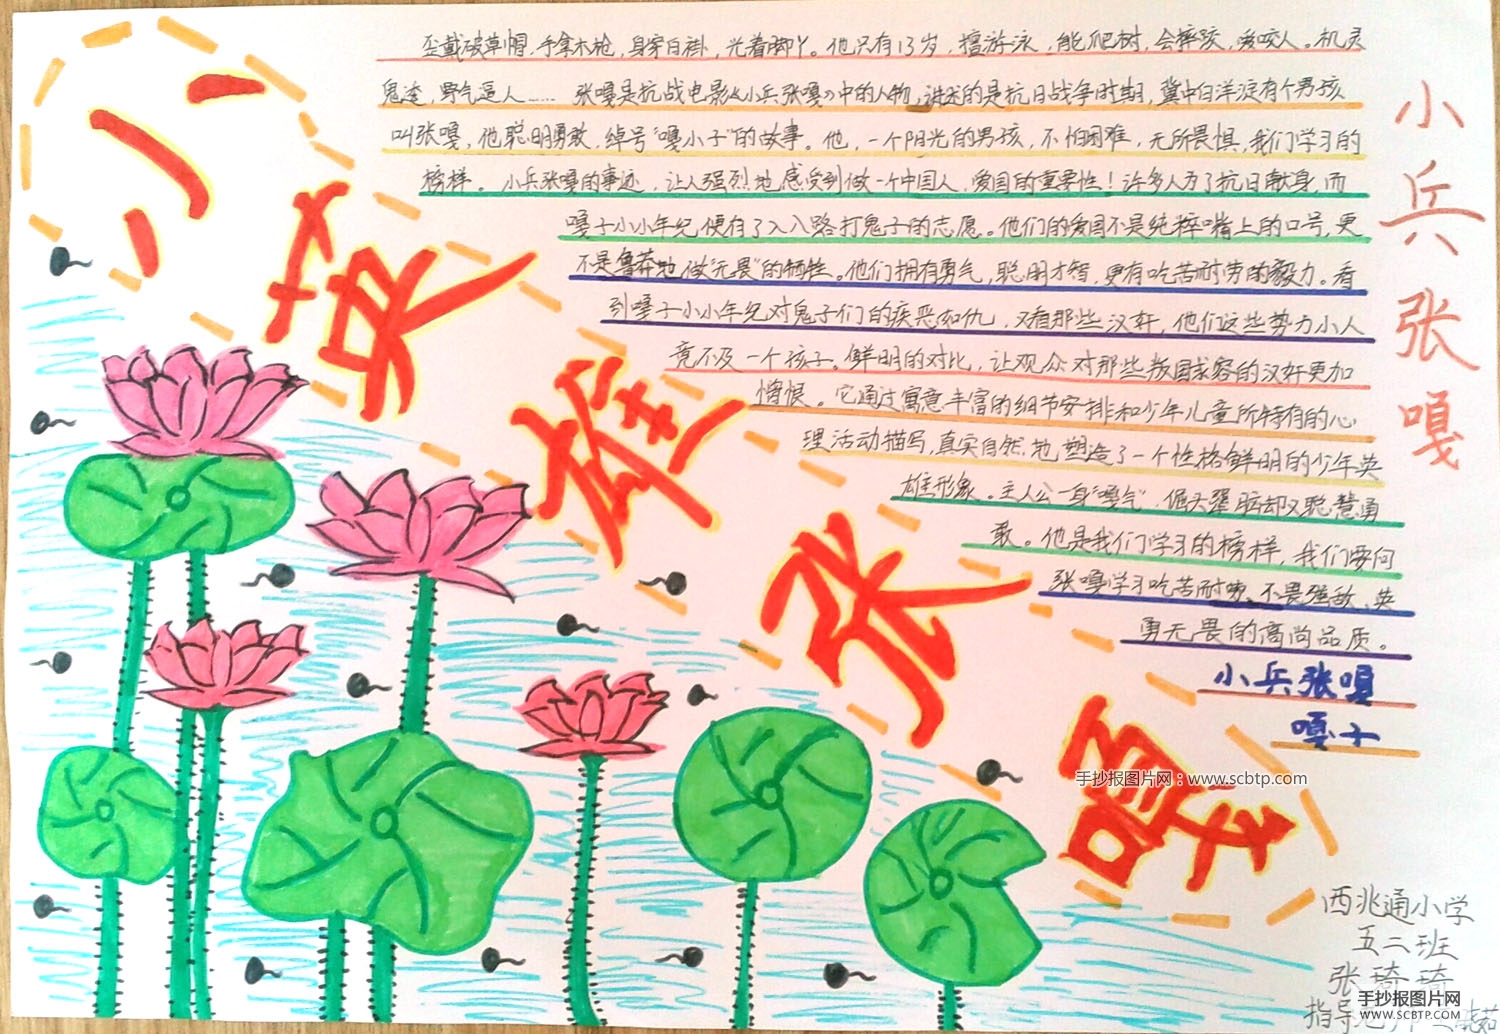 小英雄张嘎
歪戴破草帽,手拿木枪,身穿白褂,光着脚丫。他只有13岁,擅游泳,能爬树,会摔跤,爱咬人。机灵
鬼渣,野气逼人…… 张嘎是抗战电影《小兵张嘎》中的人物,讲述的是抗日战争时期,冀中白洋淀有个男孩
叫张嘎,他聪明勇敢,绰号“嘎小子”的故事。他,一个阳光的男孩,不怕困难,无所畏惧,我们学习的
榜样。小兵张嘎的事迹,让人强烈地感受到做一个中国人,爱国的重要性!许多人为了抗日献身,而
嘎子小小年纪便有了入八路打鬼子的志愿。他们的爱国不是纯粹嘴上的口号,更
不是鲁莽地做“无畏”的牺牲。他们拥有勇气,聪明才智,更有吃苦耐劳的毅力。看
到嘎子小小年纪对鬼子们的疾恶如仇,又看那些汉奸,他们这些势力小人
竟不及一个孩子。鲜明的对比,让观众对那些叛国求容的汉奸更加
憎恨。它通过寓意丰富的细节安排和少年儿童所特有的心
理活动描写,真实自然地塑造了一个性格鲜明的少年英
雄形象。主人公一身“嘎气”,倔头犟脑却又聪慧勇
敢。他是我们学习的榜样,我们要向
张嘎学习吃苦耐劳、不畏强敌、英
勇无畏的高尚品质。
小兵张嘎
嘎子
小兵张嘎
手抄报图片网：www.scbtp.com
西兆通小学
五二班
张琦琦
指导
手抄报图片网
WWW.SCBTP.COM